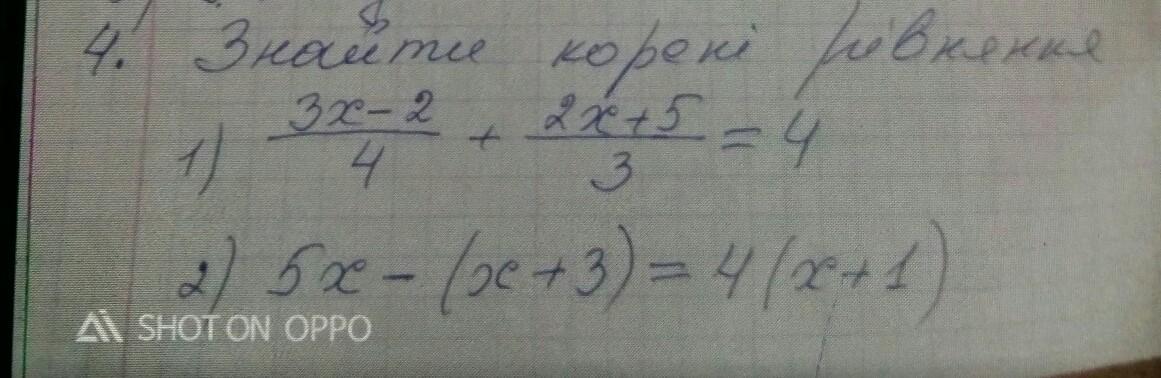 4. Знайти корені рівняння
1) (3x-2)/4 + (2x+5)/3 = 4
2) 5x - (x+3) = 4(x+1)
SHOT ON OPPO